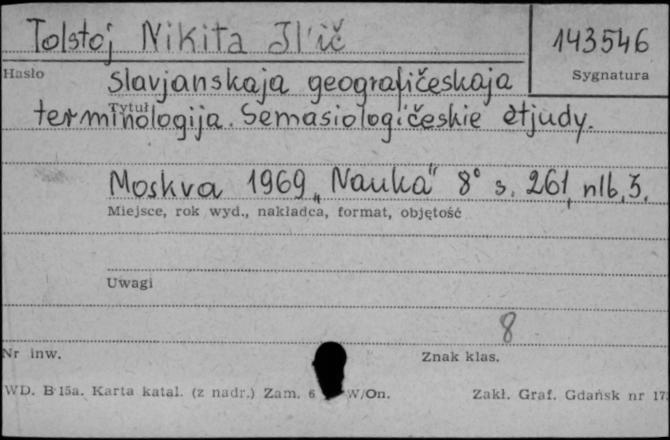 Tolstoj Nikita Il'ič
143546
Hasło
Sygnatura
Slavjanskaja geografičeskaja
Tytuł
terminologija. Semasiologičeskie ètjudy.
Moskva 1969 „Nauka" 8° s. 261, nlb. 3.
Miejsce, rok wyd., nakładca, format, objętość
Uwagi
8
Nr inw.
Znak klas.
WD. B 15a. Karta katal. (z nadr.) Zam. 6 W/On.
Zakł. Graf. Gdańsk nr 17